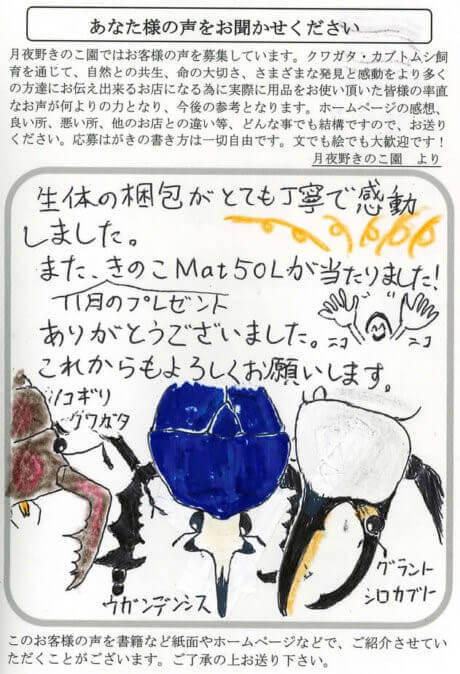 あなた様の声をお聞かせください
月夜野きのこ園ではお客様の声を募集しています。クワガタ・カブトムシ飼
育を通じて、自然との共生、命の大切さ、さまざまな発見と感動をより多く
の方達にお伝え出来るお店になる為に実際に用品をお使い頂いた皆様の率直
なお声が何よりの力となり、今後の参考となります。ホームページの感想、
良い所、悪い所、他のお店との違い等、どんな事でも結構ですので、お送り
ください。応募はがきの書き方は一切自由です。文でも絵でも大歓迎です！
月夜野きのこ園　より
生体の梱包がとても丁寧で感動
しました。
また、きのこMat50Lが当たりました！
11月のプレゼント
ありがとうございました。
ニコ
ニコ
これからもよろしくお願いします。
ノコギリ
クワガタ
ウガンデンシス
グラント
シロカブト
このお客様の声を書籍など紙面やホームページなどで、ご紹介させてい
ただくことがございます。ご了承の上お送り下さい。